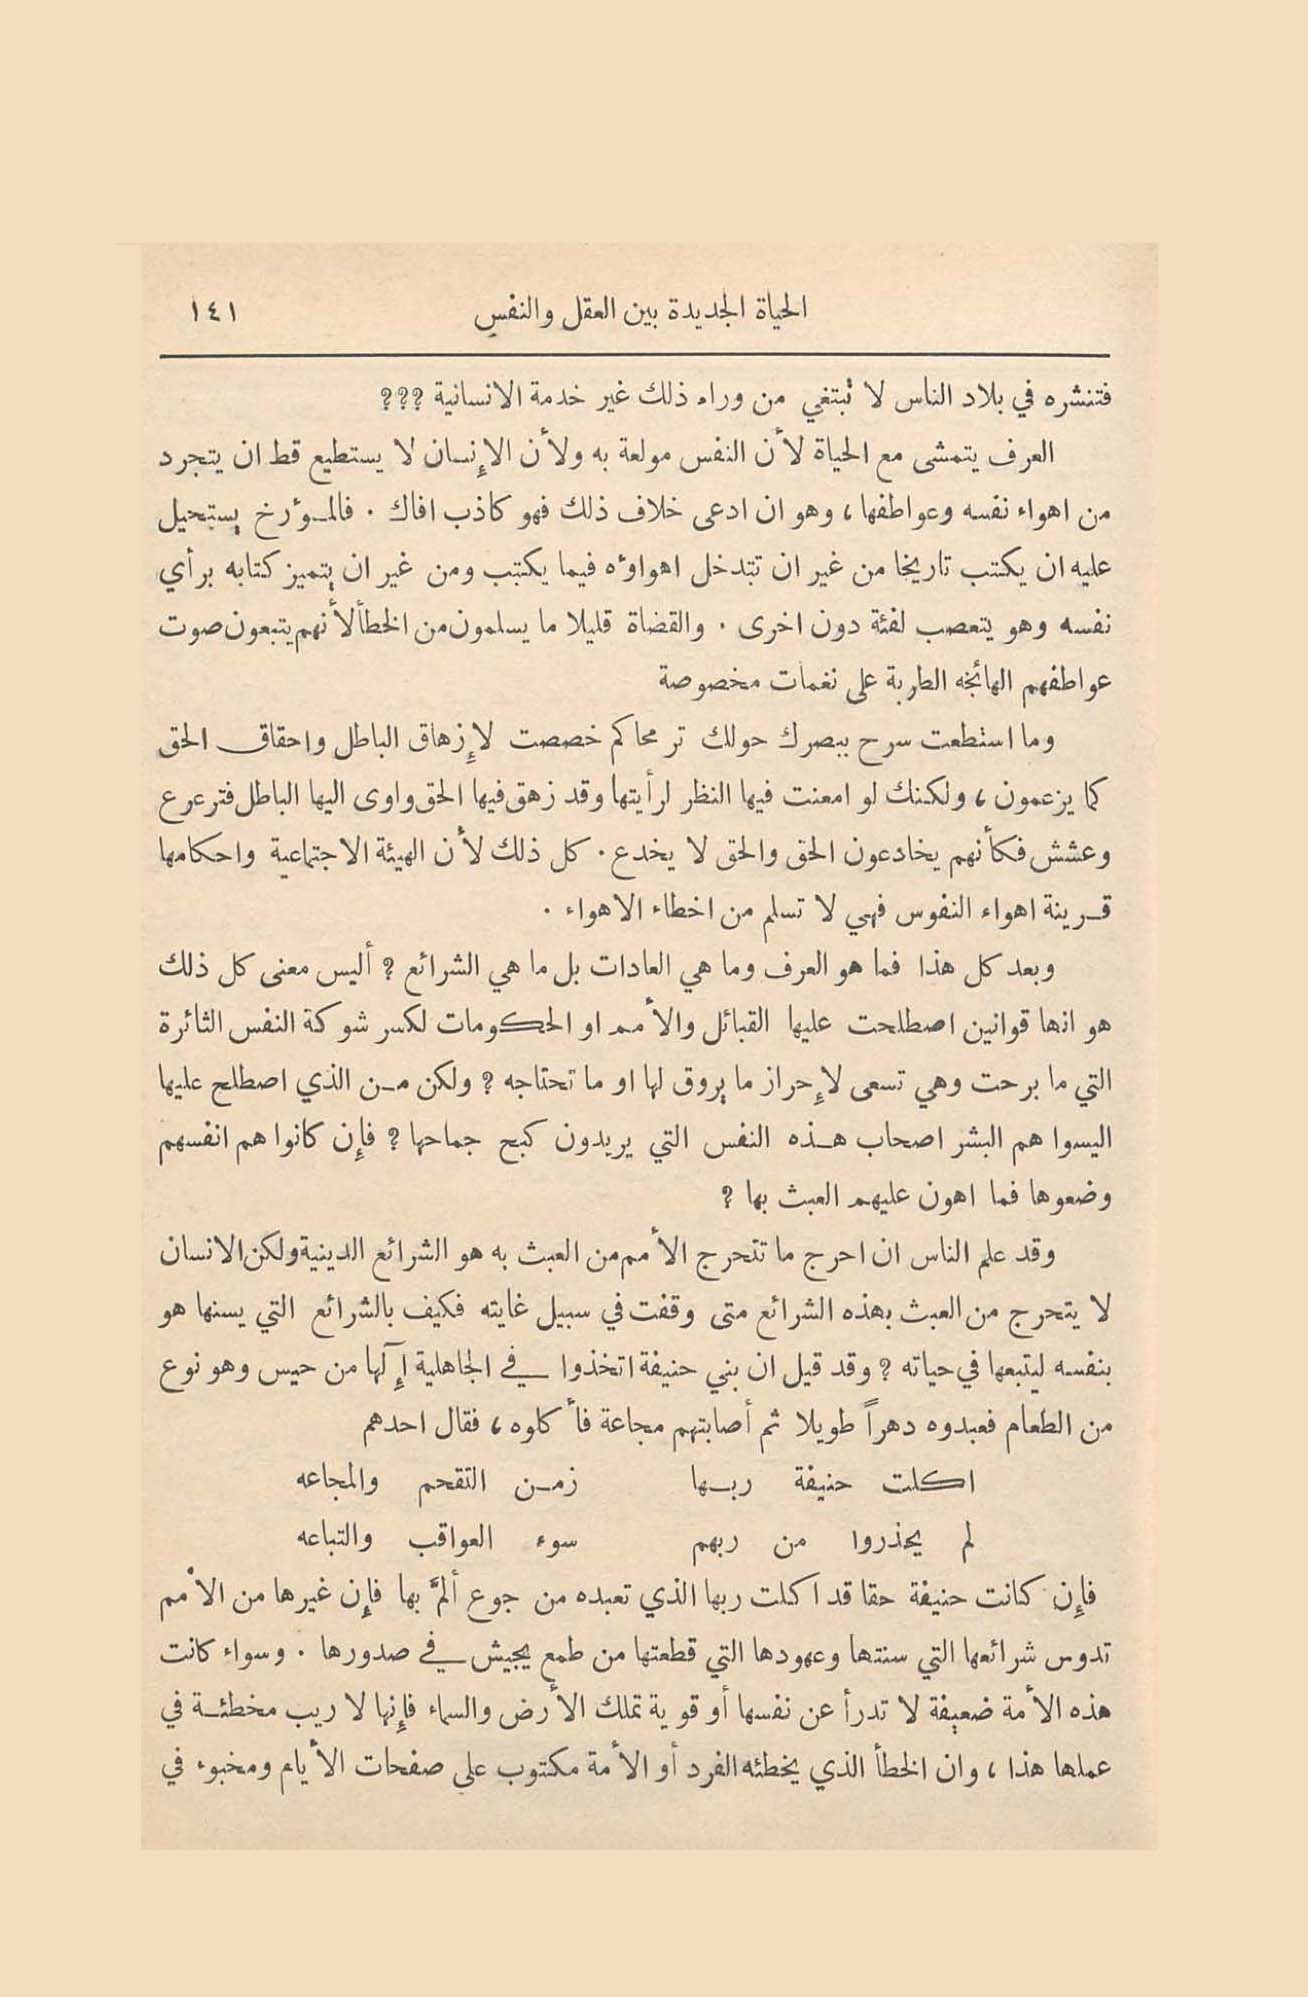 الحياة الجديدة بين العقل والنفس ١٤١
فتنشره في بلاد الناس لا تبتغي من وراء ذلك غير خدمة الانسانية ؟؟؟
العرف يتمشى مع الحياة لأن النفس مولعة به ولأن الإنسان لا يستطيع قط ان يتجرد
من اهواء نفسه وعواطفها ، وهو ان ادعى خلاف ذلك فهو كاذب افاك . فالمؤرخ يستحيل
عليه ان يكتب تاريخا من غير ان تتدخل اهواؤه فيما يكتب ومن غير ان يتميز كتابه برأي
نفسه وهو يتعصب لفئة دون اخرى . والقضاة قليلا ما يسلمون من الخطأ لأنهم يتبعون صوت
عواطفهم الهائجه الطربة على نغمات مخصوصة
وما استطعت سرح ببصرك حولك تر محاكم خصصت لإزهاق الباطل واحقاق الحق
كما يزعمون ، ولكنك لو امعنت فيها النظر لرأيتها وقد زهق فيها الحق واوى اليها الباطل فترعرع
وعشش فكأنهم يخادعون الحق والحق لا يخدع . كل ذلك لأن الهيئة الاجتماعية واحكامها
قرينة اهواء النفوس فهي لا تسلم من اخطاء الاهواء .
وبعد كل هذا فما هو العرف وما هي العادات بل ما هي الشرائع ؟ أليس معنى كل ذلك
هو انها قوانين اصطلحت عليها القبائل والأمم او الحكومات لكسر شوكة النفس الثائرة
التي ما برحت وهي تسعى لإحراز ما يروق لها او ما تحتاجه ؟ ولكن من الذي اصطلح عليها
اليسوا هم البشر اصحاب هذه النفس التي يريدون كبح جماحها ؟ فإن كانوا هم انفسهم
وضعوها فما اهون عليهم العبث بها ؟
وقد علم الناس ان احرج ما تتحرج الأمم من العبث به هو الشرائع الدينية ولكن الانسان
لا يتحرج من العبث بهذه الشرائع متى وقفت في سبيل غايته فكيف بالشرائع التي يسنها هو
بنفسه ليتبعها في حياته ؟ وقد قيل ان بني حنيفة اتخذوا في الجاهلية إآلها من حيس وهو نوع
من الطعام فعبدوه دهراً طويلا ثم أصابتهم مجاعة فأكلوه ، فقال احدهم
اكلت حنيفة ربها زمن التقحم والمجاعه
لم يحذروا من ربهم سوء العواقب والتباعه
فإن كانت حنيفة حقا قد اكلت ربها الذي تعبده من جوع ألمّ بها فإن غيرها من الأمم
تدوس شرائعها التي سنتها وعهودها التي قطعتها من طمع يجيش في صدورها . وسواء كانت
هذه الأمة ضعيفة لا تدرأ عن نفسها أو قوية تملك الأرض والسماء فإنها لا ريب مخطئة في
عملها هذا ، وان الخطأ الذي يخطئه الفرد أو الأمة مكتوب على صفحات الأيام ومخبوء في